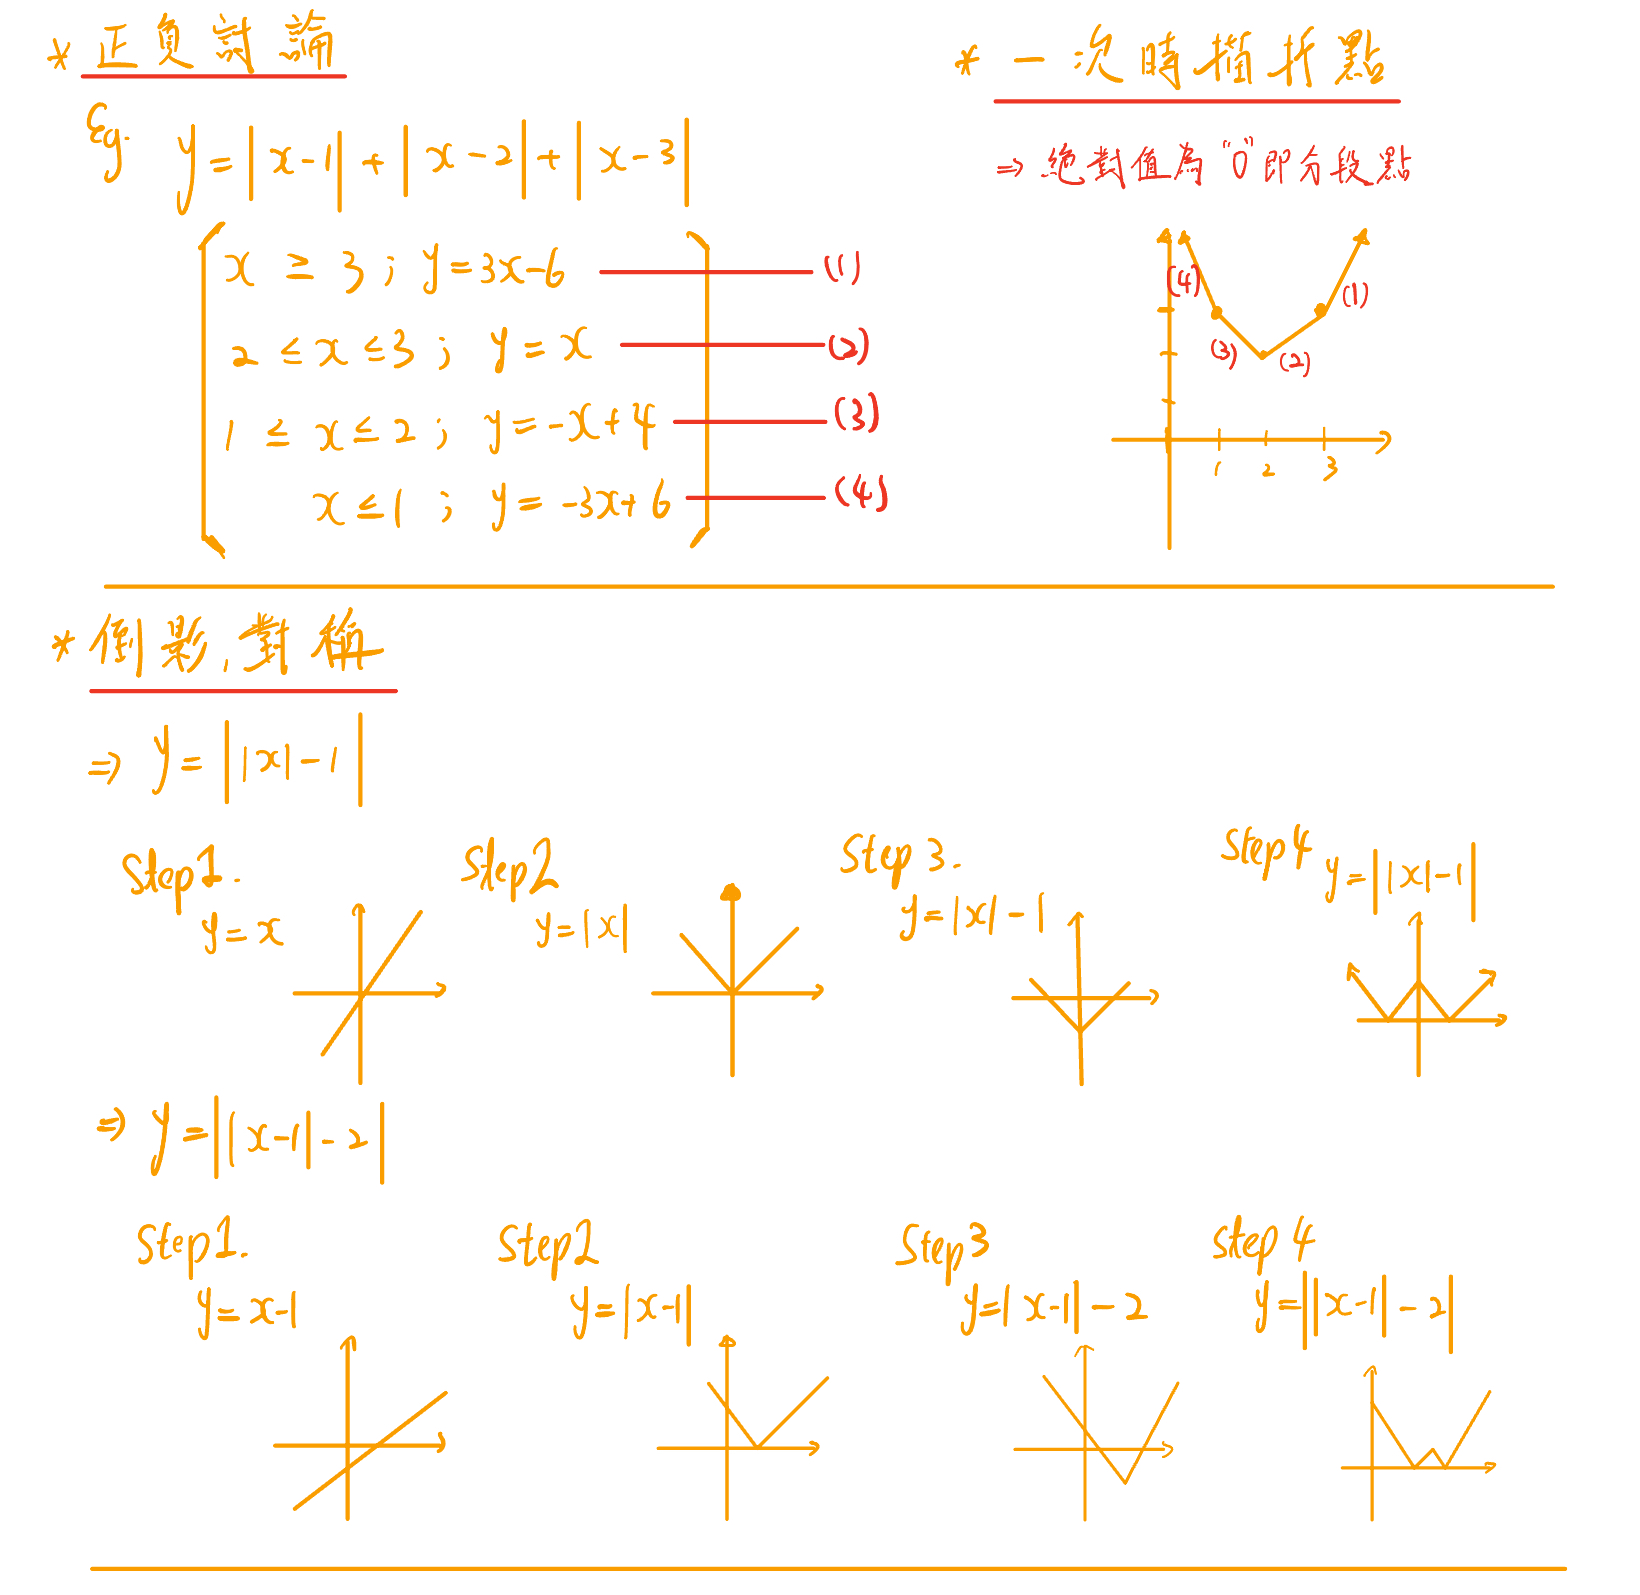 * 正負討論
Eg. y=|x-1|+|x-2|+|x-3|
x ≥ 3 ; y=3x-6 (1)
2 ≤ x ≤ 3 ; y=x (2)
1 ≤ x ≤ 2 ; y=-x+4 (3)
x ≤ 1 ; y=-3x+6 (4)
* 一次時描折點
⇒ 絕對值為 "0" 即分段點
(4)
(1)
(3)
(2)
1 2 3
* 倒影,對稱
⇒ y=||x|-1|
Step1.
y=x
Step2
y=|x|
Step 3.
y=|x|-1
Step4
y=||x|-1|
⇒ y=||x-1|-2|
Step1.
y=x-1
Step2
y=|x-1|
Step3
y=|x-1|-2
Step 4
y=||x-1|-2|